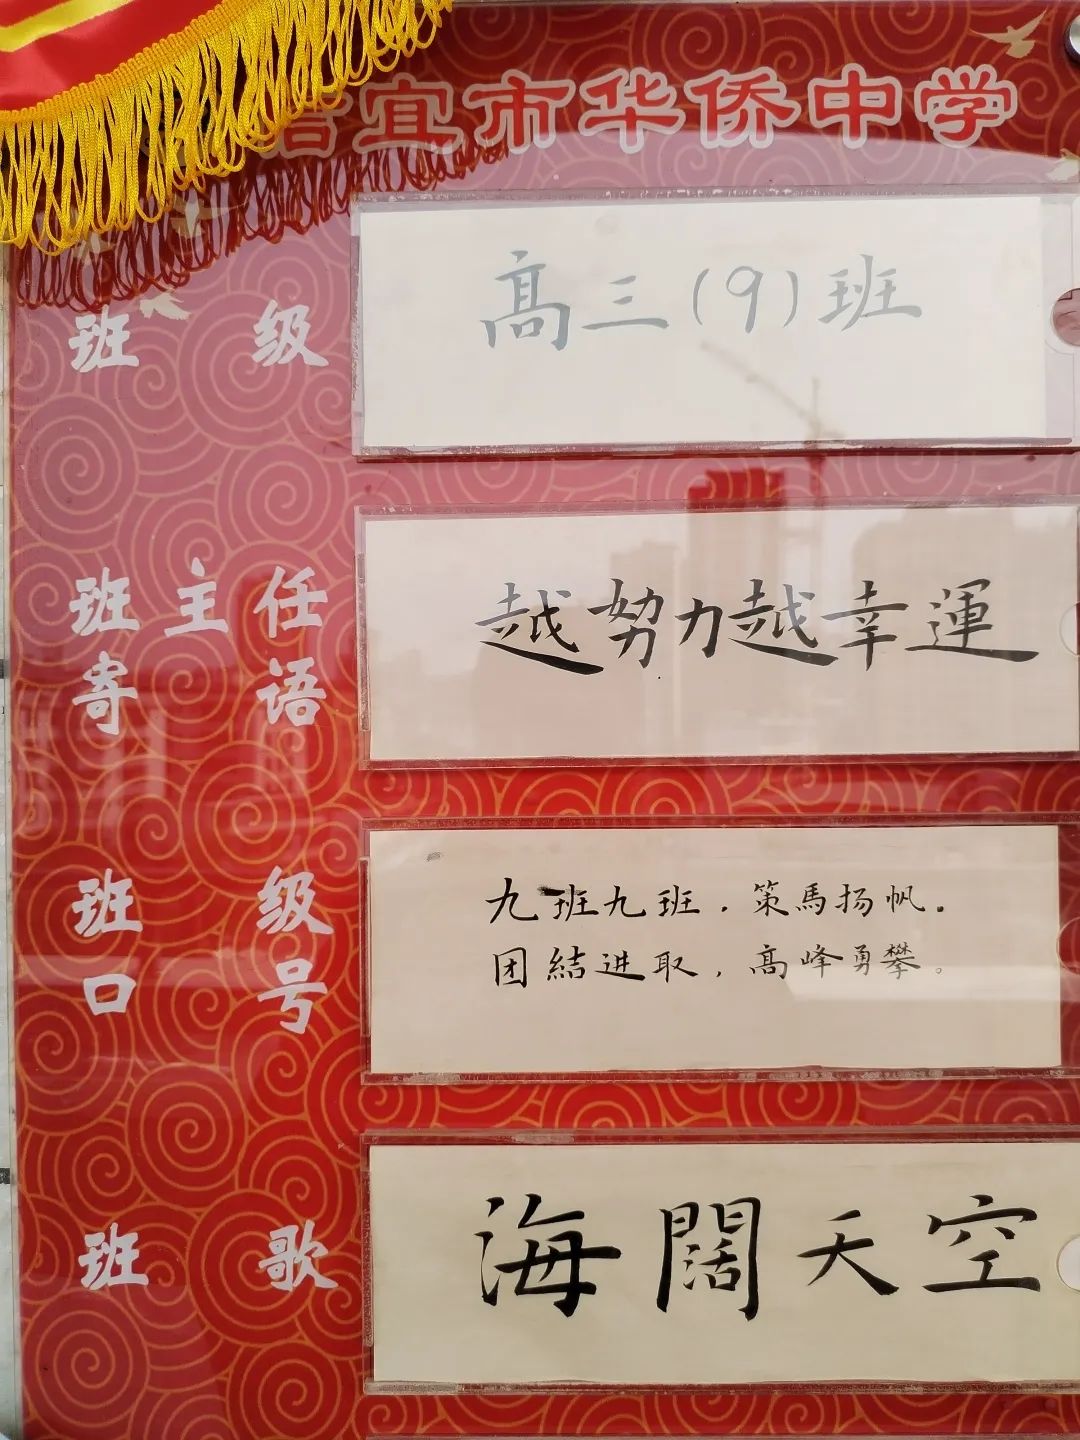 信宜市华侨中学
班级
高三(9)班
班主任
寄语
越努力越幸運
班级
口号
九班九班，策馬扬帆。
团結进取，高峰勇攀。
班歌
海闊天空